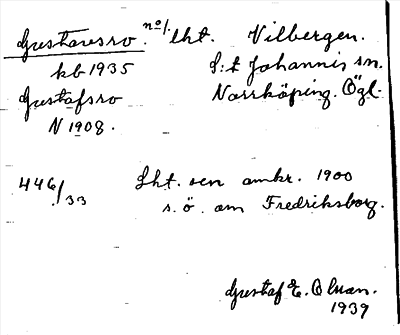 Gustavsro. no/. lht. Vilbergen.
kb 1935 S:t Johannis sn.
Gustafsro Norrköping. Ögl.
N 1908.
446/33 Lht. sen omkr. 1900
s. ö. om Fredriksborg.
Gustaf E. Olsson.
1939